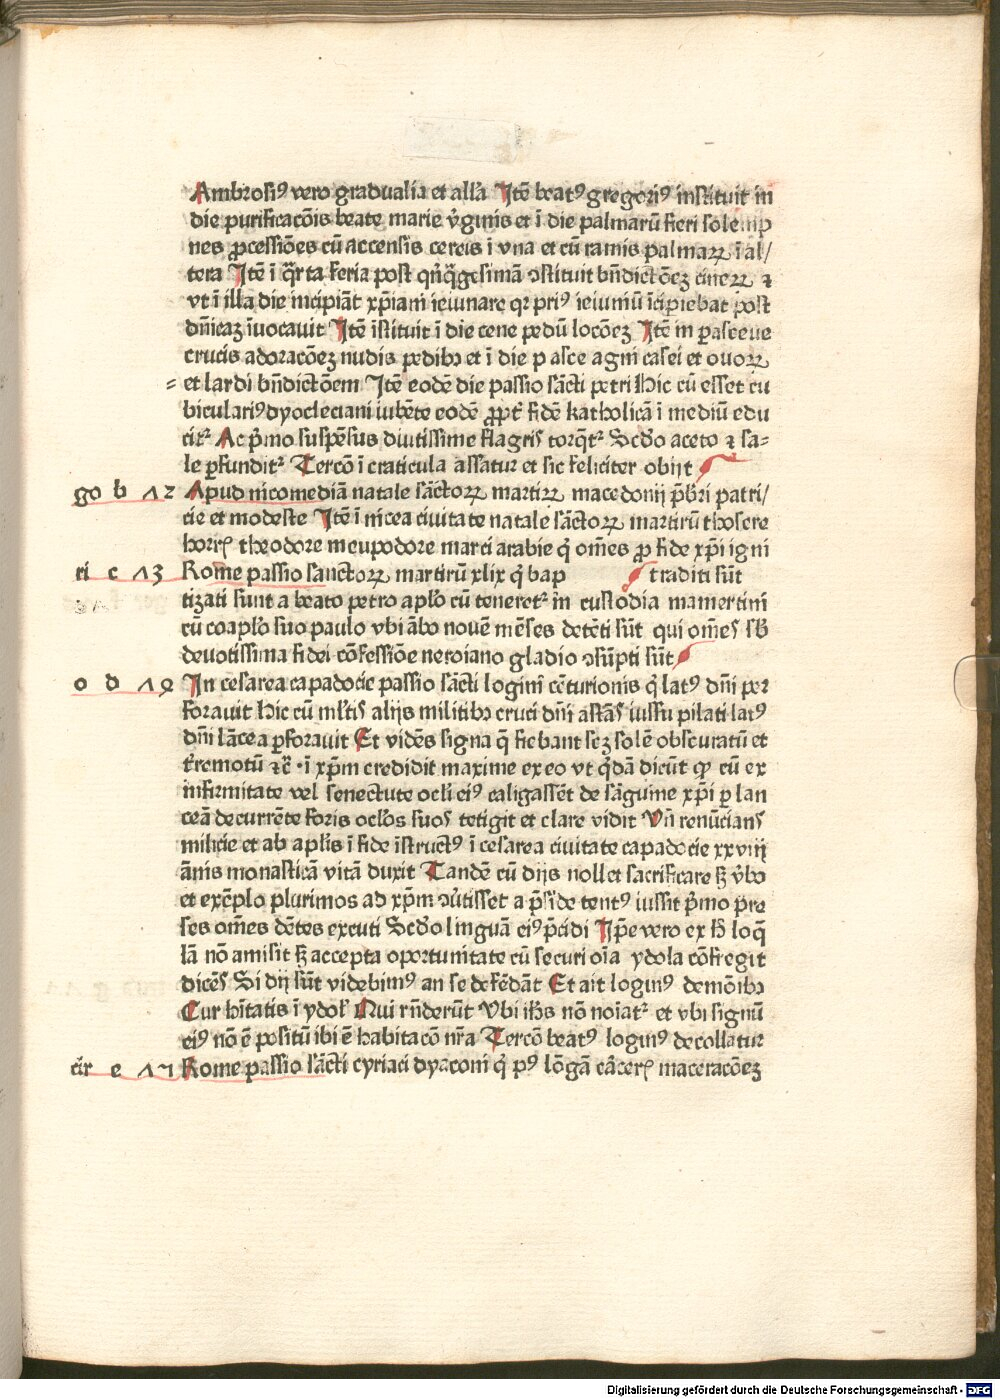 Ambrosiꝰ vero gradualia et alľa Itē beatꝰ gregoriꝰ instituit in
die purificacōis beate marie v̓ginis et ī die palmarū fieri solemp
nes ꝓcessiōes cū accensis cereis ī vna et cū ramis palmaꝝ ī al/
tera Itē ī q̈rta feria post qn̄q̈gesimā ꝯstituit bn̄dictōeꝫ cineꝝ ⁊
vt ī illa die incipiāt xp̄iani ieiunare qr priꝰ ieiuniū īcipiebat post
dn̄icaꝫ īuocauit Itē īstituit ī die cene pedū locōeꝫ Itē in ꝑasceue
crucis adoracōeꝫ nudis pedibꝫ et ī die pasce agni casei et ouoꝝ
= et lardi bn̄dictōem Itē eodē die passio sācti petri Hic cū esset cu
biculariꝰ dyocleciani iubēte eodē ꝓpt̓ fidē katholicā ī mediū edu
citᷣ Ac p̄mo suspēsus diutissime flagris torq̄tᷣ Scd̓o aceto ⁊ sa=
le ꝑfunditᷣ Tercō ī craticula assatur et sic feliciter obijt
go b 12 Apud nicomediā natale sāctoꝝ martiꝝ macedonij p̄b̓ri patri/
cie et modeste Itē ī nicea ciuitate natale sāctoꝝ martirū thosere
horiꝭ theodore meupodore marci arabie q̇ om̄es ꝓ fide xp̄i igni
ri c 13 Rome passio sanctoꝝ martirū xlix q̇ bap traditi sūt
tizati sunt a beato petro apl̓o cū teneretᷣ in custodia mamertini
cū coapl̓o suo paulo vbi ābo nouē mēses detēti sūt qui om̄es sb̓
deuotissima fidei cōfessiōe neroiano gladio ꝯsūpti sūt
o d 14 In cesarea capadocie passio sācti logini cēturionis q̇ latꝰ dn̄i per
forauit Hic cū ml̓tis alijs militibꝫ cruci dn̄i astās iussu pilati latꝰ
dn̄i lācea ꝑforauit Et vidēs signa q̄ fiebant scꝫ solē obscuratū et
t̓remotū ⁊c̄ · ī xp̄m credidit maxime ex eo vt q̇dā dicūt ꝙ cū ex
infirmitate vel senectute ocl̓i eiꝰ caligassēt de sāguine xp̄i ꝑ lan
ceā decurrēte foris ocl̓os suos tetigit et clare vidit Vn̄ renūcians
milicie et ab apl̓is ī fide īstructꝰ ī cesarea ciuitate capadocie xxviij
ānis monasticā vitā duxit Tandē cū dijs nollet sacrificare sꝫ v̓bo
et exēplo plurimos ad xp̄m ꝯu̓tisset a p̄side tentꝰ iussit p̄mo pre
ses om̄es dētes excuti Scd̓o linguā eiꝰ p̄cidi Ip̄e vero ex h̓ loq̄
lā nō amisit sꝫ accepta oportunitate cū securi oīa ydola cōfregit
dicēs Si dij sūt videbimꝰ an se defēdāt Et ait loginꝰ demōibꝫ
Cur hītatis ī ydol̓ Qui rn̄derūt Vbi ih̄s nō noīatᷣ et vbi signū
eiꝰ nō ē positū ibi ē habitacō nr̄a Tercō beatꝰ loginꝰ decollatur
cir e 15 Rome passio sācti cyriaci dyaconi q̇ pꝰ lōgā cāceꝭ maceracōeꝫ
Digitalisierung gefördert durch die Deutsche Forschungsgemeinschaft - DFG